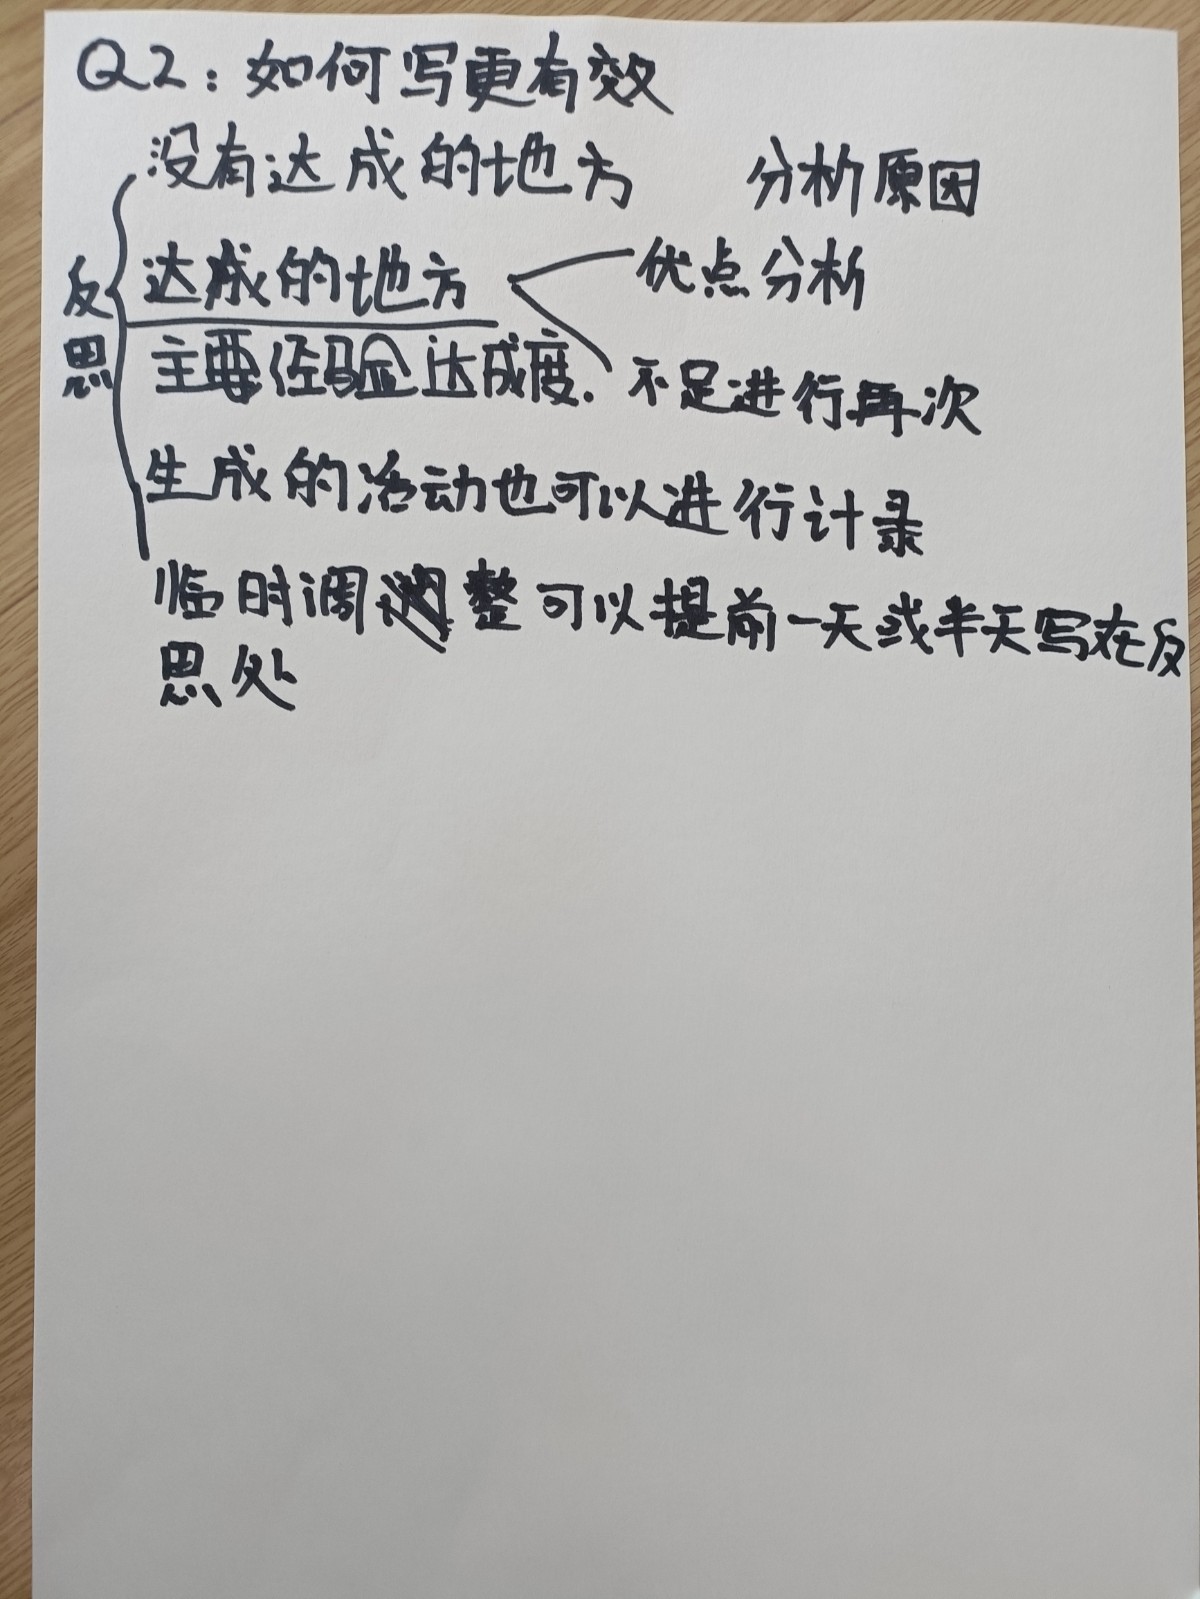 Q2：如何写更有效
没有达成的地方 分析原因
反思
达成的地方 优点分析
主要经验达成度. 不足进行再次
生成的活动也可以进行计录
临时调整可以提前一天或半天写在反
思处